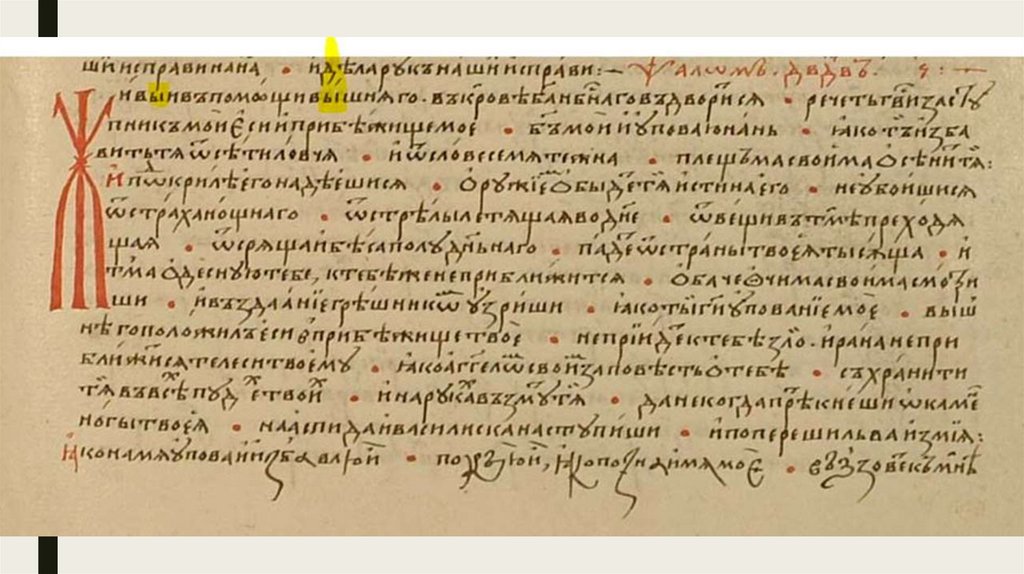 ши исправи на на · и дѣла рукъ наши исправи :— Ѱаломъ . дв҃двъ.
Живыи въ помощи вышняго . въ кровѣ б҃а нб҃наго въдворися · речетъ гв҃и застꙋ
пникъ мои еси и прибѣжище мое · бг҃ъ мои и уповаю нань · ꙗко тъи изба
витъ тя ѿ сѣти ловчя · и ѿ словесе мятежна · плещъма своима осѣнитъ тя :
и под крилѣ его надѣешися · оружіем обыдет тя истина его · не убоишися
ѿ страха нощнаго · ѿ стрѣлы летящая во дне · ѿ вещи въ тмѣ преходя
щая · ѿ сряща и бѣса полуднънаго · падет ѿ страны твоея тысяща · и
тма одесную тебе, к тебѣ же не приближится · обаче ѻчима своима смотри
ши · и въздаание грѣшником узриши · ꙗко ты ги упование мое · выш
нѣго положилъ еси прибѣжище твое · не приидет к тебѣ зло . и рана не при
ближися телеси твоему · ꙗко агг҃елом своим заповѣсть о тебѣ · съхранити
тя въ всѣх путех твоих · и на руках възмут тя · да не когда прѣткнеши ѡ камен
ногы твоея · на аспида и василиска наступиши · и попереши льва и змия :
ꙗко на мя упова и избавлю и · покрыю и, ꙗко позна имя мое · възовет къ мнѣ